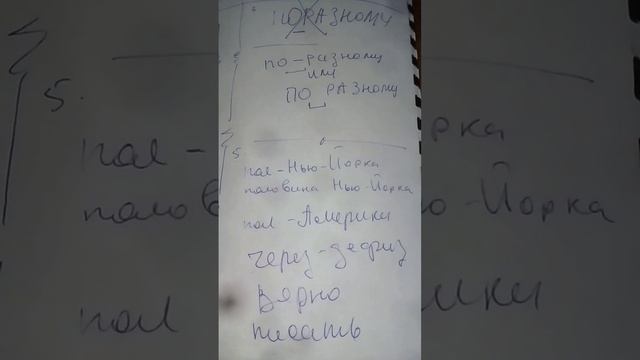 ПОРАЗНОМУ
по-разному
или
ПО РАЗНОМУ
5
пол-Нью-Йорка
половина Нью-Йорка
пол-Америки
через-дефиз
верно
писать